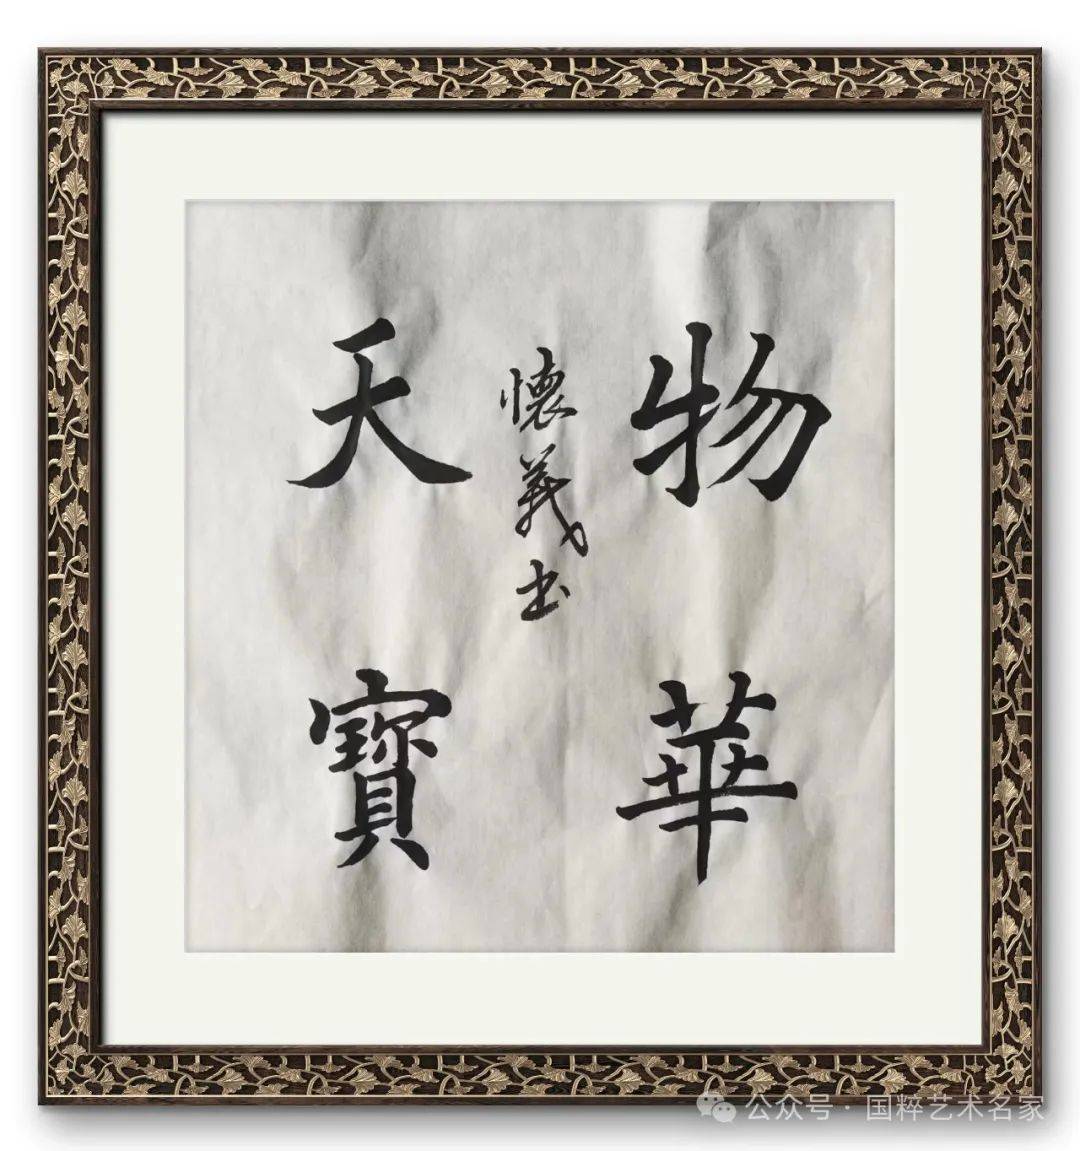 物華
天寶
懷義书
公众号 · 国粹艺术名家